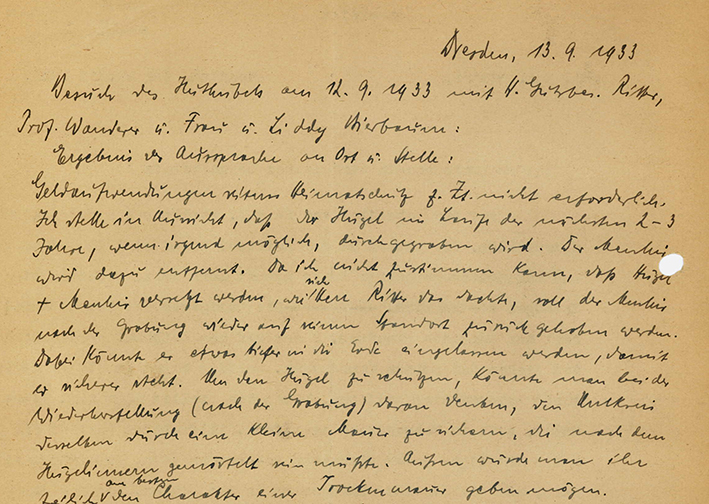 Dresden, 13. 9. 1933
Besuch des Huthübels am 12. 9. 1933 mit H. Gutsbes. Ritter,
Prof. Wanderer u. Frau u. Liddy Bierbaum:
Ergebnis der Aussprache an Ort u. Stelle:
Geldaufwendungen seitens Heimatschutz z. Zt. nicht erforderlich.
Ich stelle in Aussicht, daß der Hügel im Laufe der nächsten 2-3
Jahre, wenn irgend möglich, durchgegraben wird. Der Menhir
wird dazu entfernt. Da ich nicht zustimmen kann, daß Hügel
+ Menhir versetzt werden, wie sich Herr Ritter das dachte, soll der Menhir
nach der Grabung wieder auf seinen Standort zurück gehoben werden.
Dabei könnte er etwas tiefer in die Erde eingelassen werden, damit
er sicherer steht. Um den Hügel zu schützen, könnte man bei der
Wiederherstellung (nach der Grabung) daran denken, den Umkreis
desselben durch eine kleine Mauer zu sichern, die nach dem
Hügelinnern gemörtelt sein müßte. Außen würde man ihr
am besten den Charakter einer Trockenmauer geben mögen.